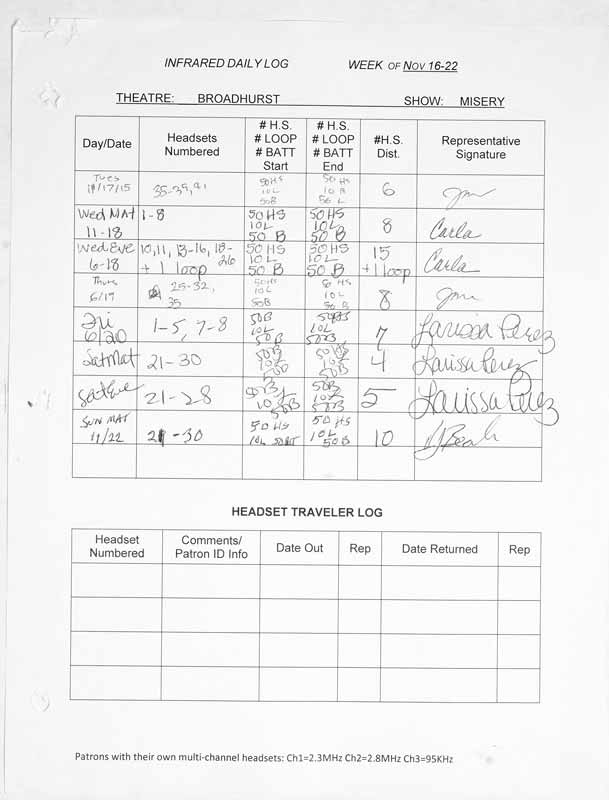 INFRARED DAILY LOG WEEK OF NOV 16-22
THEATRE: BROADHURST SHOW: MISERY
Day/Date
Headsets
Numbered
# H.S.
# LOOP
# BATT
Start
# H.S.
# LOOP
# BATT
End
#H.S.
Dist.
Representative
Signature
Tues
11/17/15
50 HS
10 L
50 B
50 HS
10 B
50 L
6
Wed MAT
11-18
1-8
50 HS
10 L
50 B
50 HS
10 L
50 B
8
Carla
Wed Eve
6-18
10, 11, 13-16, 18-
26
+ 1 loop
50 HS
10 L
50 B
50 HS
10 L
50 B
15
+1 loop
Carla
Thurs
6/19
25-32,
35
50 HS
10 L
50 B
50 HS
10 L
50 B
8
Fri
6/20
1-5, 7-8
10L
50B
7
Larissa Perez
Sat Mat
21-30
4
Larissa Perez
Sat Eve
21-28
10L
50B
50B
10L
50B
5
Larissa Perez
SUN MAT
11/22
21-30
50 HS
10L 50 BT
50 HS
10L
50B
10
HEADSET TRAVELER LOG
Headset
Numbered
Comments/
Patron ID Info
Date Out
Rep
Date Returned
Rep
Patrons with their own multi-channel headsets: Ch1=2.3MHz Ch2=2.8MHz Ch3=95KHz